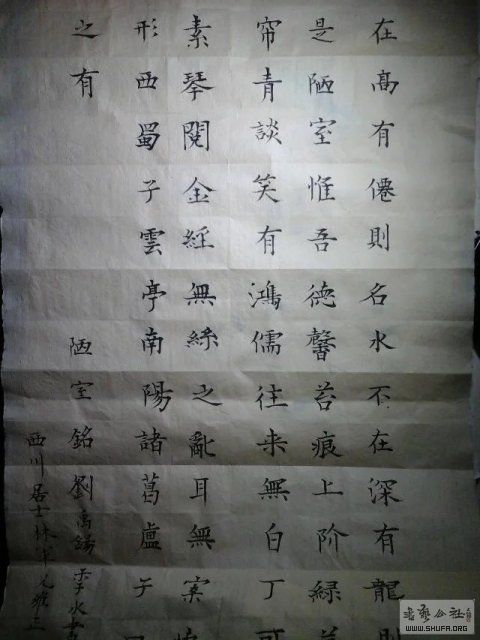 在高有僊則名水不在深有龍
是陋室惟吾德馨苔痕上阶緑
帘青談笑有鴻儒往来無白丁可
素琴閱金經無絲之亂耳無案
形西蜀子雲亭南陽諸葛盧子
之有
陋室銘劉禹錫
西川居士林
WWW.SHUFA.ORG